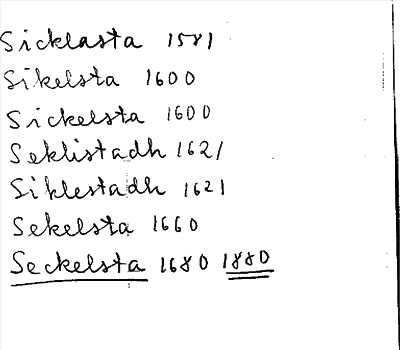 Sicklasta 1581
Sikelsta 1600
Sickelsta 1600
Seklistadh 1621
Siklestadh 1621
Sekelsta 1660
Seckelsta 1680 1880